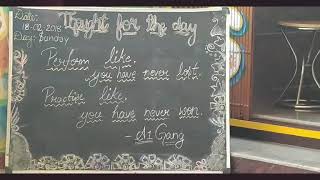 Date:
18-02-2018
Day: Sunday
Thought for the day
Perform like
you have never lost.
Practice like,
you have never won.
- A1 Gang